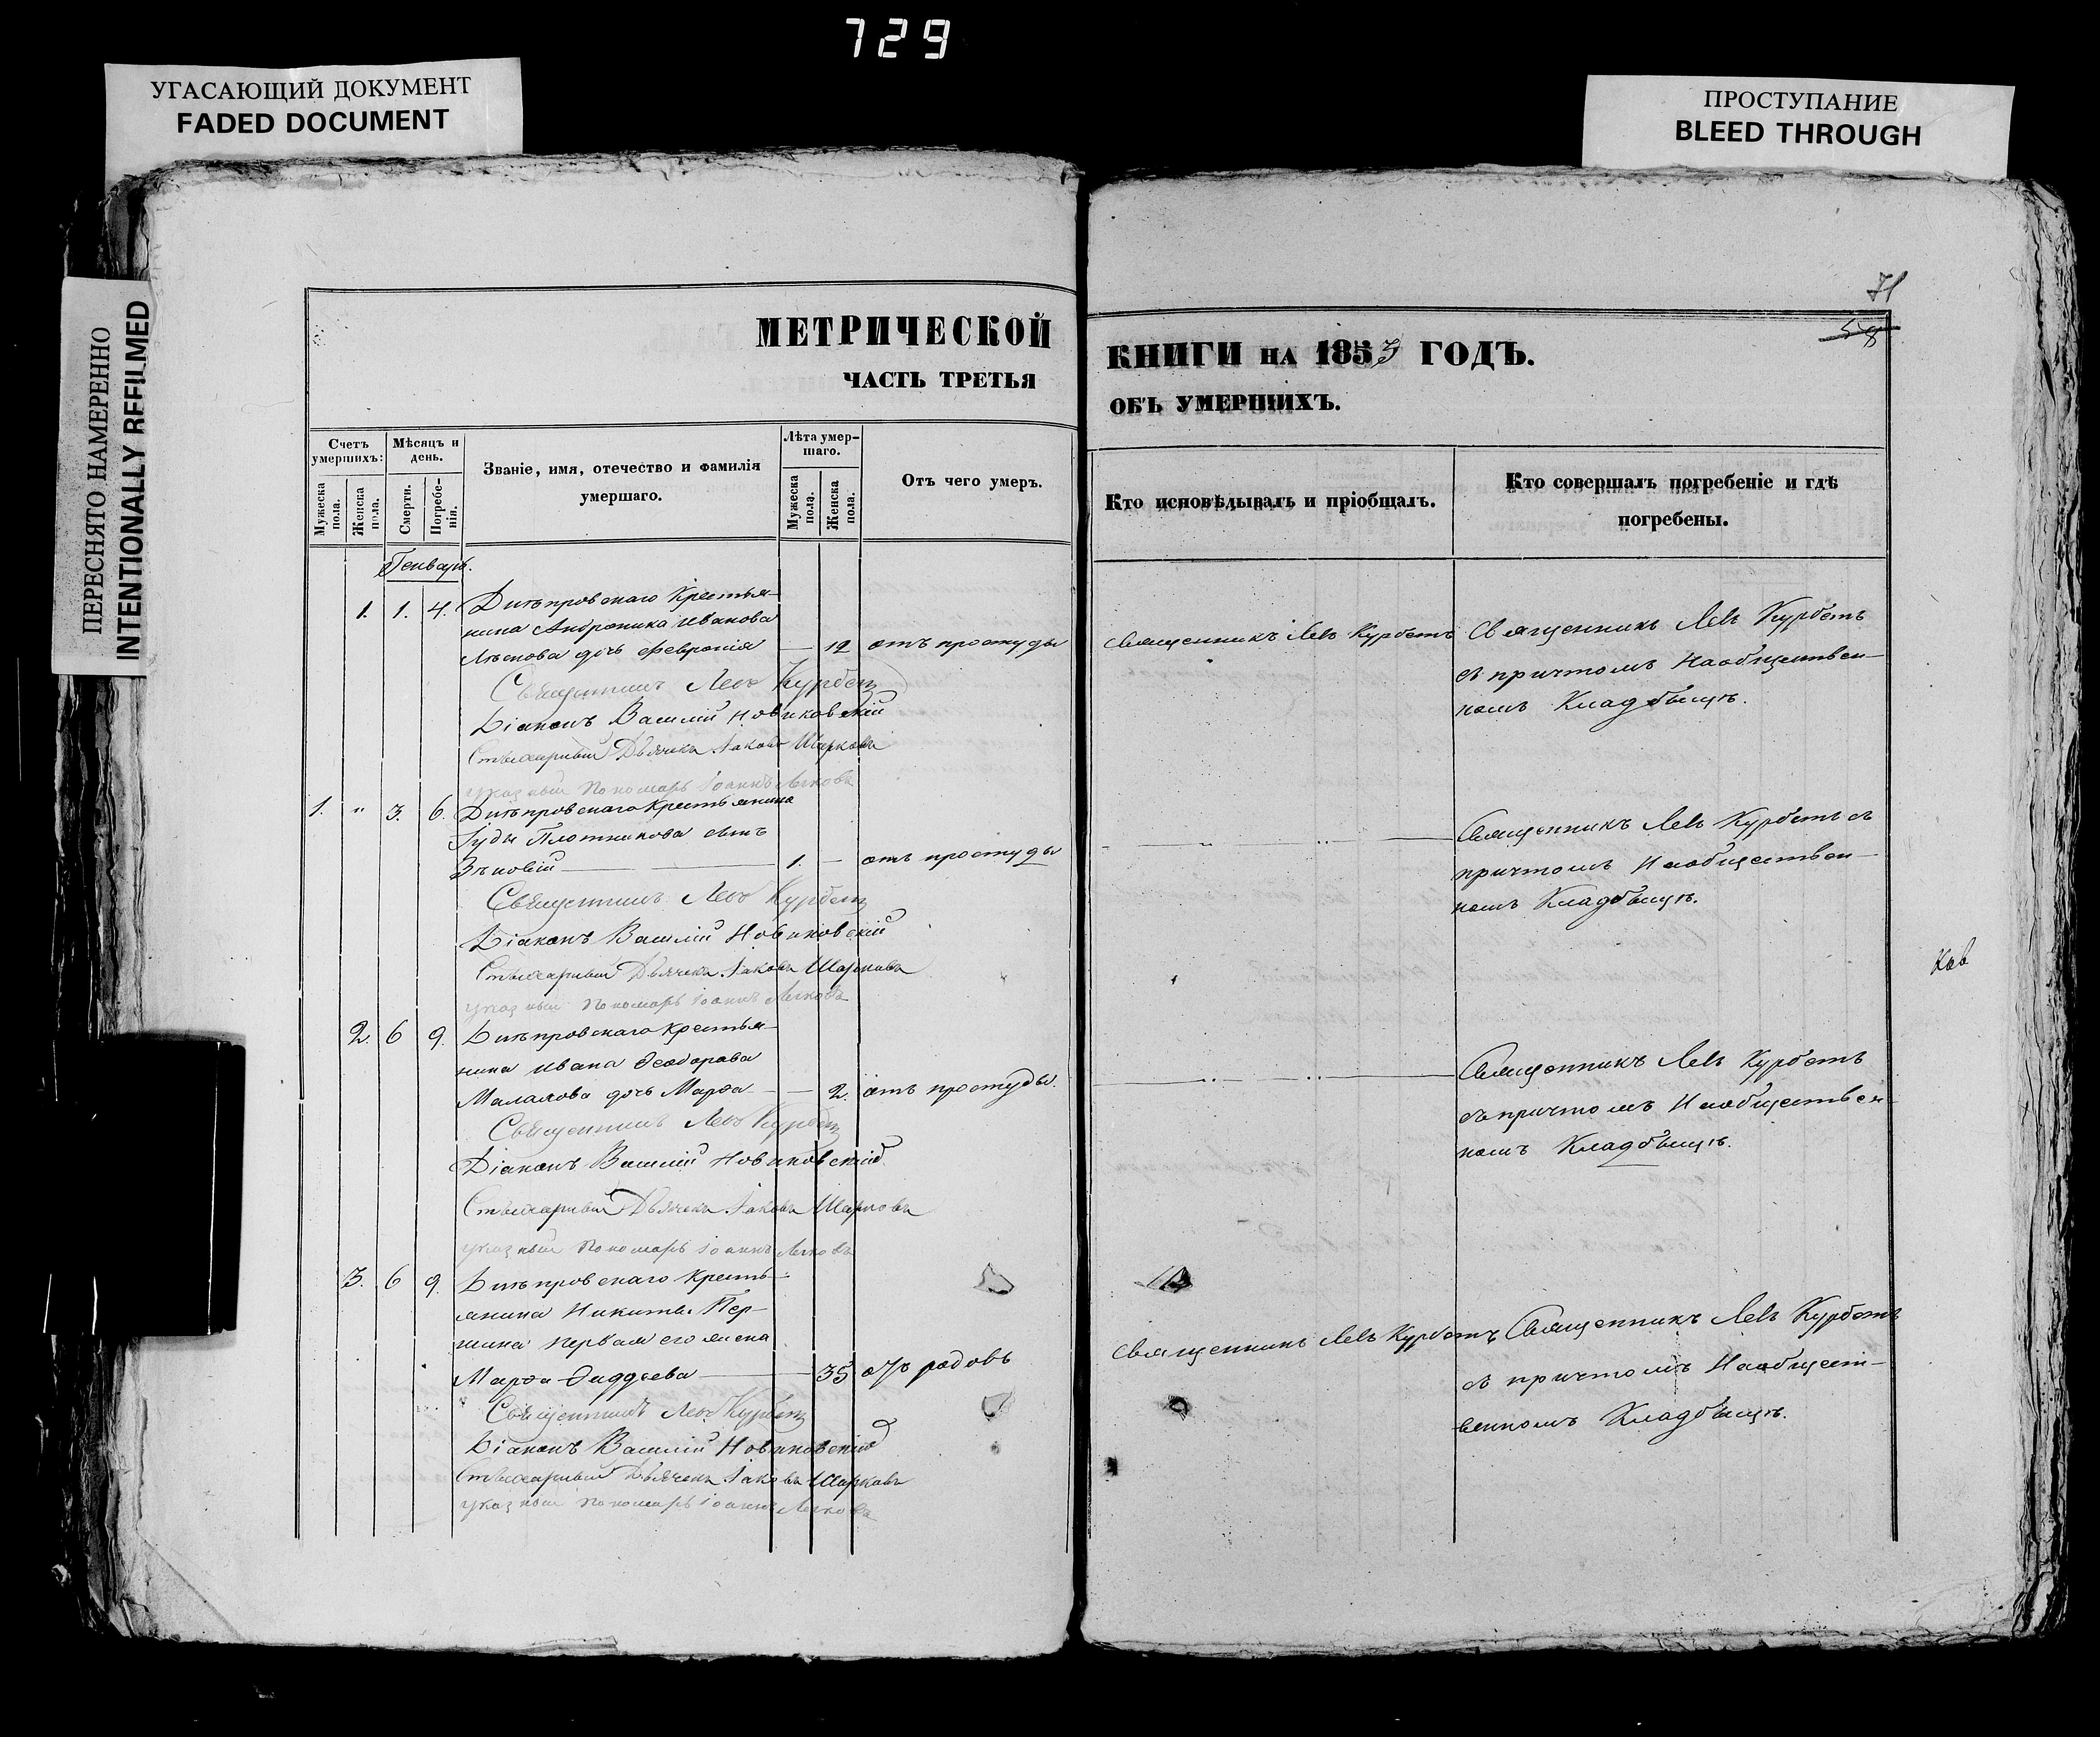 729
УГАСАЮЩИЙ ДОКУМЕНТ
FADED DOCUMENT
ПРОСТУПАНИЕ
BLEED THROUGH
ПЕРЕСНЯТО НАМЕРЕННО
INTENTIONALLY REFILMED
71
МЕТРИЧЕСКОЙ
ЧАСТЬ ТРЕТЬЯ
Счетъ умершихъ:
Мужеска пола.
Женска пола.
Мѣсяцъ и день.
Смерти.
Погребенія.
Званіе, имя, отечество и фамилія
умершаго.
Лѣта умершаго.
Мужеска пола.
Женска пола.
Отъ чего умеръ.
Генварь.
1. 1. 4. Днѣпровскаго Крестья-
нина Андроника Иванова
дочь Февронія — 12 отъ простуды
Священникъ Левъ Курбетъ
Діаконъ Василій Новиковскій
Стихарный Дьячекъ Іаковъ Шарковъ
указный Пономарь Іоаннъ
1. " 3. 6. Днѣпровскаго Крестьянина
Іуды Плотникова сынъ
Зѣновій — 1. — отъ простуды
Священникъ Левъ Курбетъ
Діаконъ Василій Новиковскій
Стихарный Дьячекъ Іаковъ Шарковъ
указный Пономарь Іоаннъ
2. 6 9. Днѣпровскаго Крестья-
нина Ивана Ѳеодорова
Малахова дочь Марѳа — — 2. отъ простуды.
Священникъ Левъ Курбетъ
Діаконъ Василій Новиковскій
Стихарный Дьячекъ Іаковъ Шарковъ
указный Пономарь Іоаннъ
3. 6 9. Днѣпровскаго Кресть-
янина Никиты Пер-
шина первая его жена
Марѳа Ѳаддѣева — 35 отъ родовъ
Священникъ Левъ Курбетъ
Діаконъ Василій Новиковскій
Стихарный Дьячекъ Іаковъ Шарковъ
указный Пономарь Іоаннъ
КНИГИ НА 1853 ГОДЪ.
ОБЪ УМЕРШИХЪ.
Кто исповѣдывалъ и пріобщалъ.
Кто совершалъ погребеніе и гдѣ
погребены.
Священникъ Левъ Курбетъ
Священникъ Левъ Курбетъ
съ причтомъ Наобществен-
номъ Кладбыщѣ.
Священникъ Левъ Курбетъ съ
причтомъ Наобществен-
номъ Кладбыщѣ.
Священникъ Левъ Курбетъ
съ причтомъ Наобществен-
номъ Кладбыщѣ.
Священникъ Левъ Курбетъ
Священникъ Левъ Курбетъ
съ причтомъ Наобщест-
венномъ Кладбыщѣ.